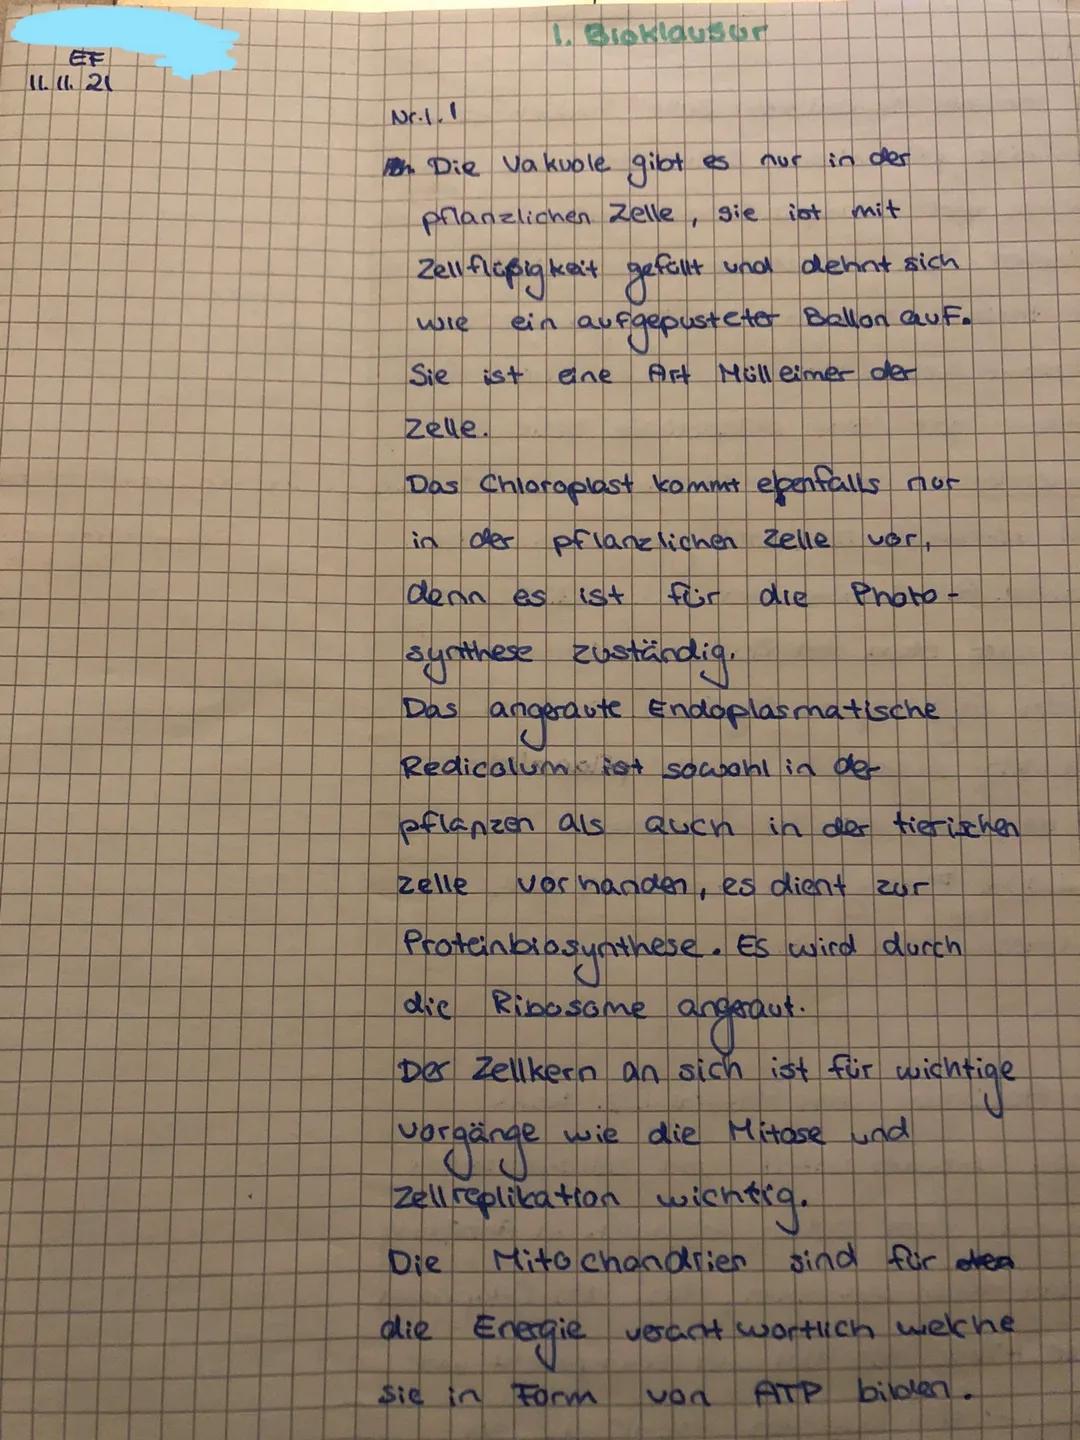 1. Bioklausur
EF
11.11.21
Nr.1.1
Die Vakuole gibt es nur in der
pflanzlichen Zelle, sie ist mit
Zellflüßigkeit gefüllt und dehnt sich
wie ein aufgepusteter Ballon auf.
Sie ist eine Art Mülleimer der
Zelle.
Das Chloroplast kommt ebenfalls nur
in der pflanzlichen Zelle vor,
denn es ist für die Photo-
synthese zuständig.
Das angeraute Endoplasmatische
Redicolum ist sowohl in der
pflanzen als auch in der tierischen
zelle vorhanden, es dient zur
Proteinbiosynthese. Es wird durch
die Ribosome angeraut.
Der Zellkern an sich ist für wichtige
vorgänge wie die Mitose und
Zellreplikation wichtig.
Die Mitochondrien sind für
die Energie verantwortlich welche
sie in Form von ATP bilden.